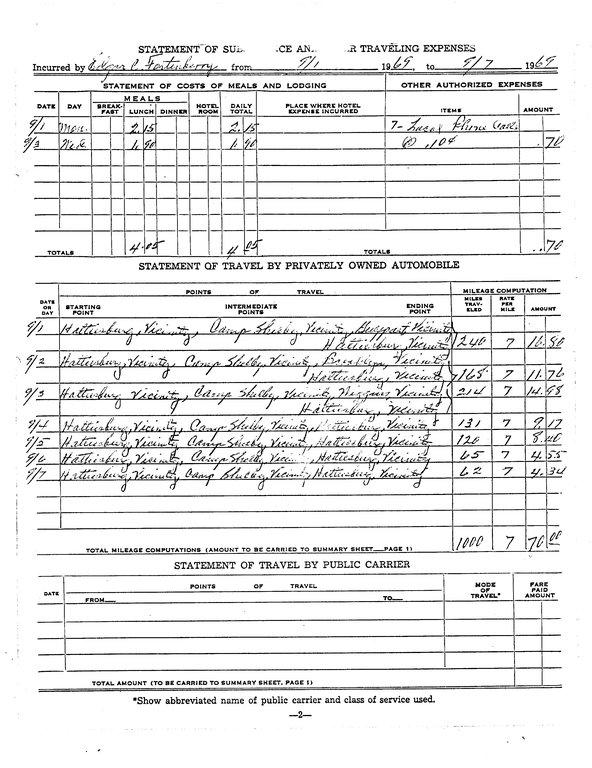 STATEMENT OF SUB CE AN R TRAVELING EXPENSES
Incurred by Edgar C. Fortenberry from 9/1 1969, to 9/7 1969
STATEMENT OF COSTS OF MEALS AND LODGING OTHER AUTHORIZED EXPENSES
DATE DAY MEALS BREAK-FAST LUNCH DINNER HOTEL ROOM DAILY TOTAL PLACE WHERE HOTEL EXPENSE INCURRED ITEMS AMOUNT
9/1 Mon. 2.15 2.15 7- Local Phone Calls
9/3 Wed. 1.90 1.90 @ .10¢ .70
TOTALS 4.05 4.05 TOTALS .70
STATEMENT OF TRAVEL BY PRIVATELY OWNED AUTOMOBILE
DATE OR DAY POINTS OF TRAVEL MILEAGE COMPUTATION
STARTING POINT INTERMEDIATE POINTS ENDING POINT MILES TRAVELED RATE PER MILE AMOUNT
9/1 Hattiesburg, Vicinity, Camp Shelby, Vicinity, Gulfport Vicinity
Hattiesburg Vicinity 240 7 16.80
9/2 Hattiesburg, Vicinity, Camp Shelby, Vicinity, Vicinity
Hattiesburg, Vicinity 168 7 11.76
9/3 Hattiesburg Vicinity, Camp Shelby, Vicinity, Wiggins Vicinity 214 7 14.98
Hattiesburg, Vicinity
9/4 Hattiesburg, Vicinity, Camp Shelby, Vicinity, Hattiesburg, Vicinity 131 7 9.17
9/5 Hattiesburg, Vicinity, Camp Shelby, Vicinity, Hattiesburg, Vicinity 120 7 8.40
9/6 Hattiesburg, Vicinity, Camp Shelby, Vici Hattiesburg, Vicinity 65 7 4.55
9/7 Hattiesburg, Vicinity, Camp Shelby, Vicinity, Hattiesburg, Vicinity 62 7 4.34
TOTAL MILEAGE COMPUTATIONS (AMOUNT TO BE CARRIED TO SUMMARY SHEET—PAGE 1) 1000 7 70.00
STATEMENT OF TRAVEL BY PUBLIC CARRIER
DATE POINTS OF TRAVEL MODE OF TRAVEL* FARE PAID AMOUNT
FROM— TO—
TOTAL AMOUNT (TO BE CARRIED TO SUMMARY SHEET, PAGE 1)
*Show abbreviated name of public carrier and class of service used.
—2—